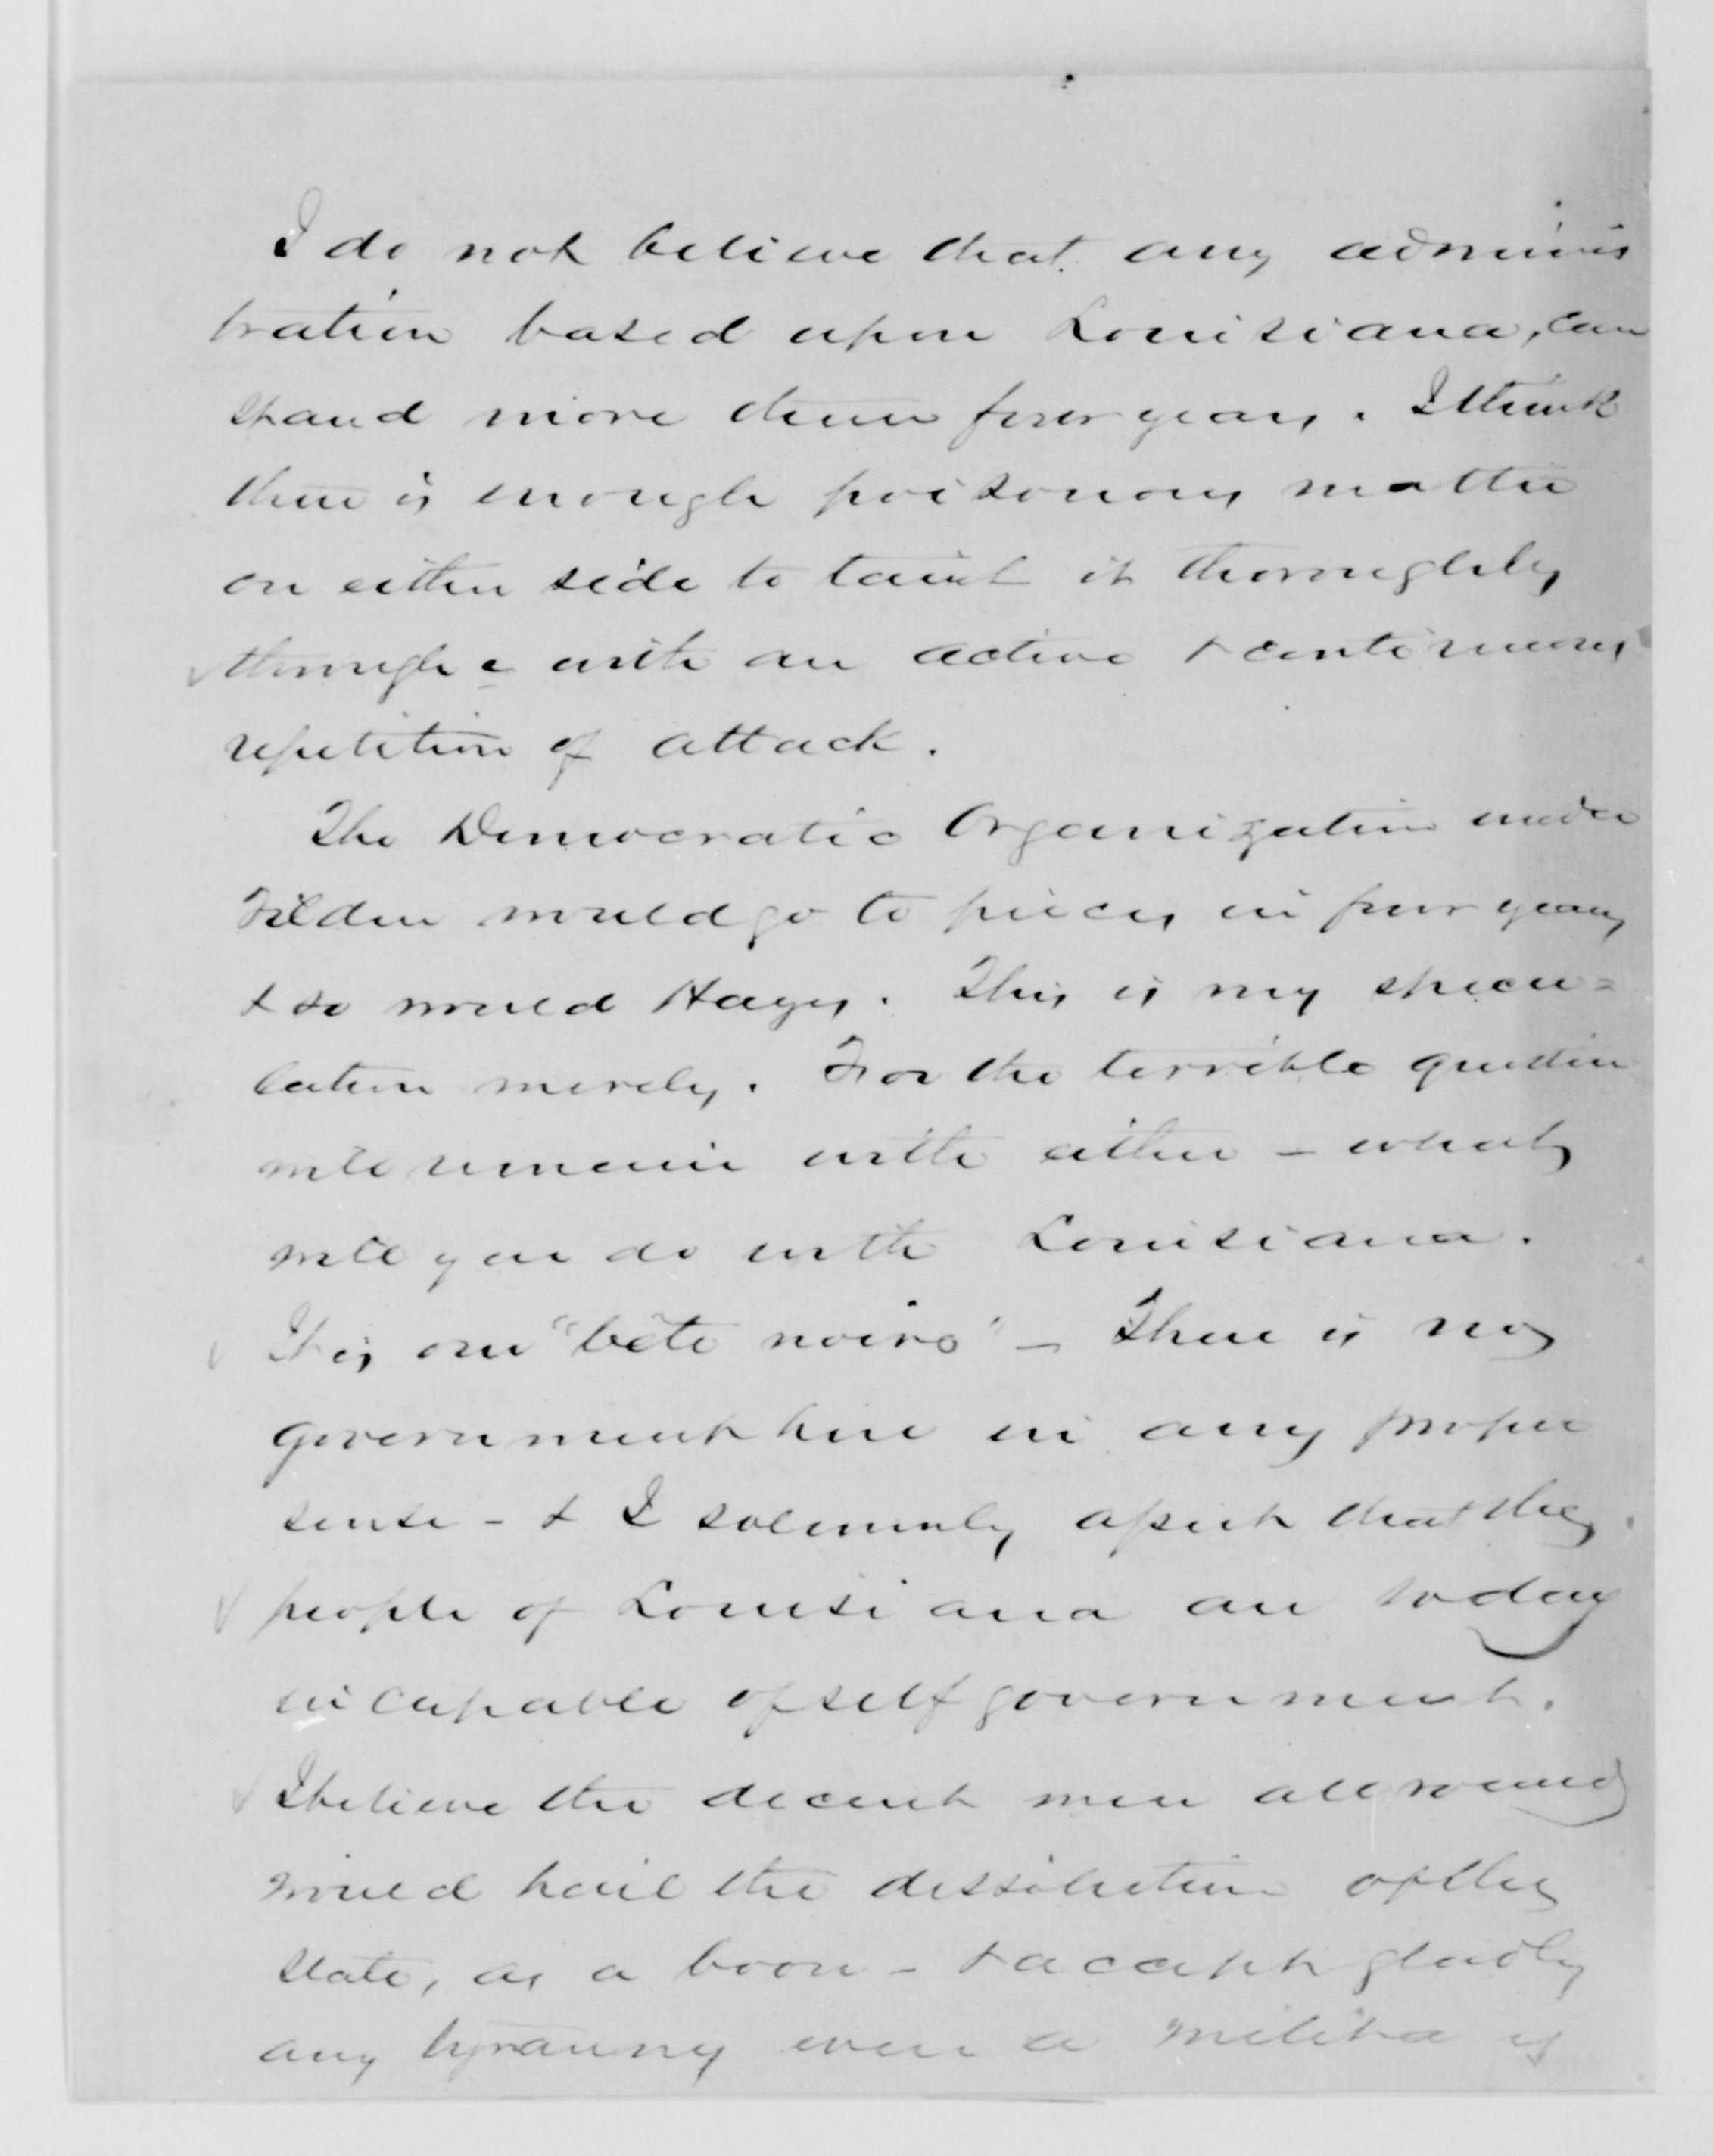 I do not believe that any adminis
tration based upon Louisiana, can
stand more than four years. I think
there is enough poisonous matter
on either side to taint it thoroughly
through & with an active & continuous
repetition of attack.
The Democratic Organization under
Tilden would go to pieces in four years
& so would Hayes. This is my specu=
lation merely. For the terrible question
will remain with either – what
will you do with Louisiana.
It is our "bête noire" – There is no
government here in any proper
sense – & I solemnly assert that the
people of Louisiana are today
incapable of self government.
I believe the decent men all round
would hail the dissolution of the
State, as a boon – & accept gladly
any tyranny even a